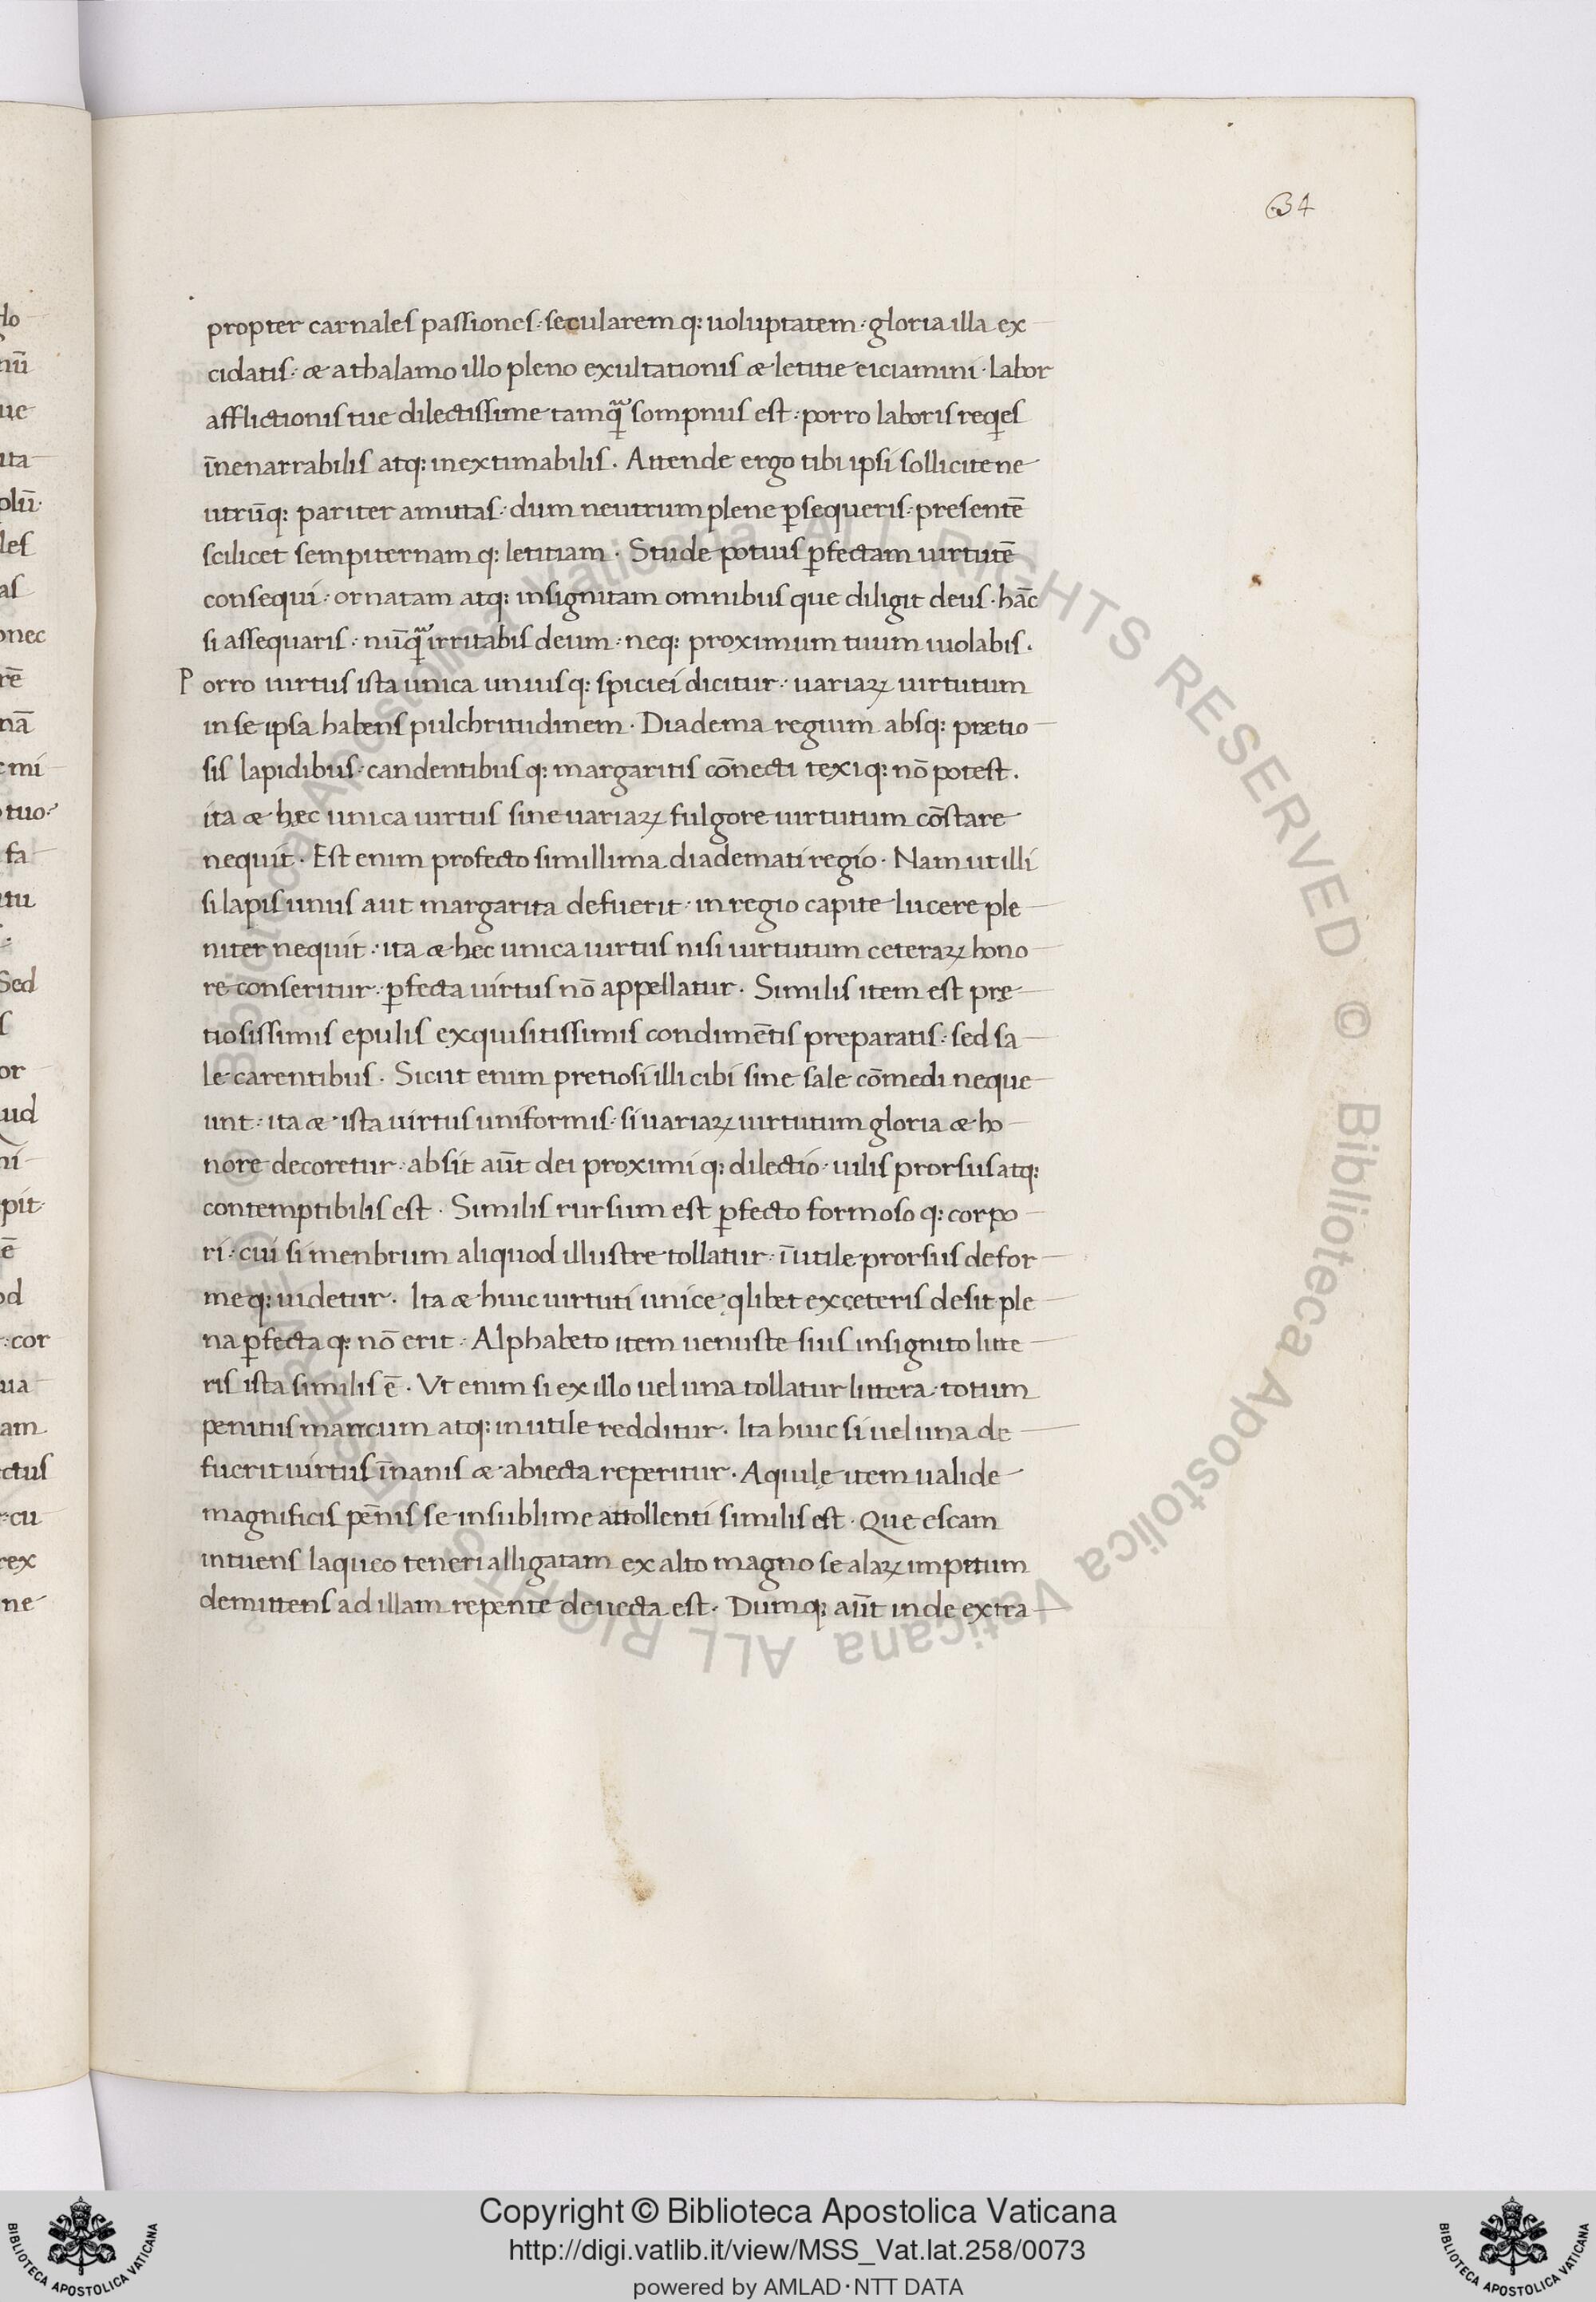 34
propter carnales passiones· secularem q: uoluptatem· gloria illa ex
cidatis· æ a thalamo illo pleno exultationis æ letitie eiciamini· labor
afflictionis tue dilectissime tamq̃ sompnus est· porro laboris reqes
īnenarrabilis atq: inextimabilis. Attende ergo tibi ipsi sollicite ne
utrūq: pariter amittas· dum neutrum plene ꝑsequeris· presentē
scilicet sempiternam q: letitiam· Stude potius ꝑfectam uirtutē
consequi· ornatam atq: insignitam omnibus que diligit deus· hāc
si assequaris· nūq̃ irritabis deum· neq: proximum tuum uiolabis.
Porro uirtus ista unica unius q: spiciei dicitur· uariaꝝ uirtutum
in se ipsa habens pulchritudinem· Diadema regium absq: prætio
sis lapidibus· candentibus q: margaritis cōnecti texi q: nō potest.
ita æ hęc unica uirtus sine uariaꝝ fulgore uirtutum cōstare
nequit· Est enim profecto simillima diademati regio· Nam ut illi
si lapis unus aut margarita defuerit· in regio capite lucere ple
niter nequit· ita æ hec unica uirtus nisi uirtutum ceteraꝝ hono
re conseritur· ꝑfecta uirtus nō appellatur· Similis item est prę
tiosissimis epulis exquisitissimis condimētis preparatis· sed sa
le carentibus· Sicut enim pretiosi illi cibi sine sale cōmedi neque
unt· ita æ ista uirtus uniformis· si uariaꝝ uirtutum gloria æ ho
nore decoretur· absit aūt dei proximi q: dilectio· uilis prorsus atq:
contemptibilis est· Similis rursum est ꝑfecto formoso q: corpo
ri· cui si menbrum aliquod illustre tollatur· īutile prorsus defor
me q: uidetur· Ita æ huic uirtuti unice qlibet ex cęteris desit ple
na ꝑfecta q: nō erit· Alphabeto item uenuste suis insignito litte
ris ista similis ē· Vt enim si ex illo uel una tollatur littera· totum
penitus mancum atq: inutile redditur· Ita huic si uel una de
fuerit uirtus īnanis æ abiecta reperitur· Aquilę item ualide
magnificis pēnis se in sublime attollenti similis est· Que escam
intuens laqueo teneri alligatam ex alto magno se alaꝝ impetum
demittens ad illam repente deuecta est· Dumq: aūt inde extra
© Biblioteca Apostolica Vaticana ALL RIGHTS RESERVED
Copyright © Biblioteca Apostolica Vaticana
http://digi.vatlib.it/view/MSS_Vat.lat.258/0073
powered by AMLAD·NTT DATA
BIBLIOTECA APOSTOLICA VATICANA
BIBLIOTECA APOSTOLICA VATICANA